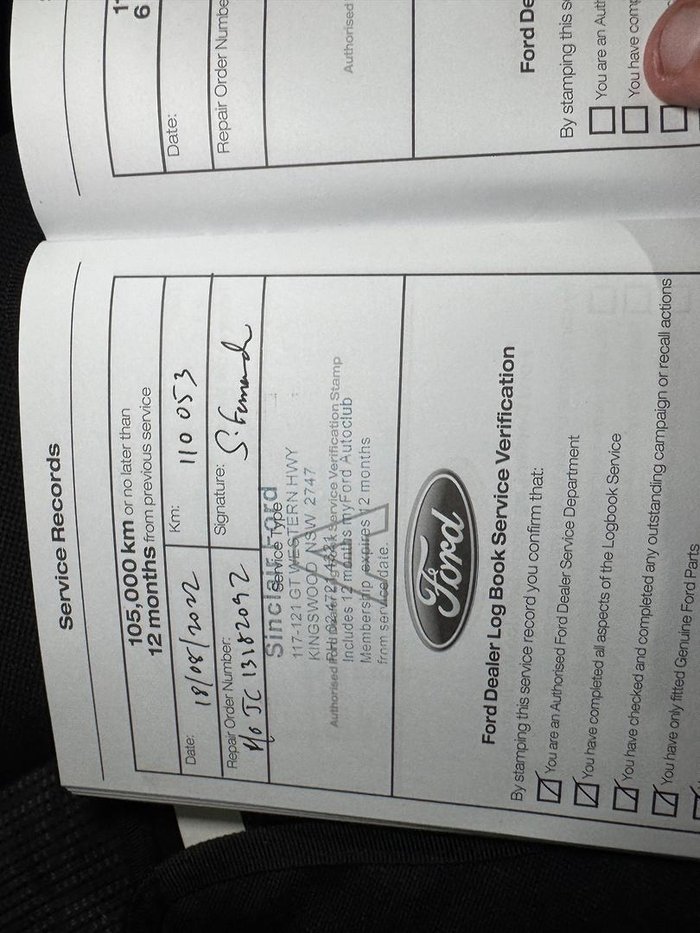 Service Records
105,000 km or no later than
12 months from previous service
Date: 18/08/2022 Km: 110 053
Repair Order Number: Signature:
Sinclair Ford
Service Type
117-121 GT WESTERN HWY
KINGSWOOD NSW 2747
Service Verification Stamp
Includes 12 months myFord Autoclub
Membership expires 12 months
from service date.
Ford
Ford Dealer Log Book Service Verification
By stamping this service record you confirm that:
You are an Authorised Ford Dealer Service Department
You have completed all aspects of the Logbook Service
You have checked and completed any outstanding campaign or recall actions
You have only fitted Genuine Ford Parts
6
Date:
Repair Order Numbe
Authorised
Ford De
By stamping this s
You are an Auth
You have comp